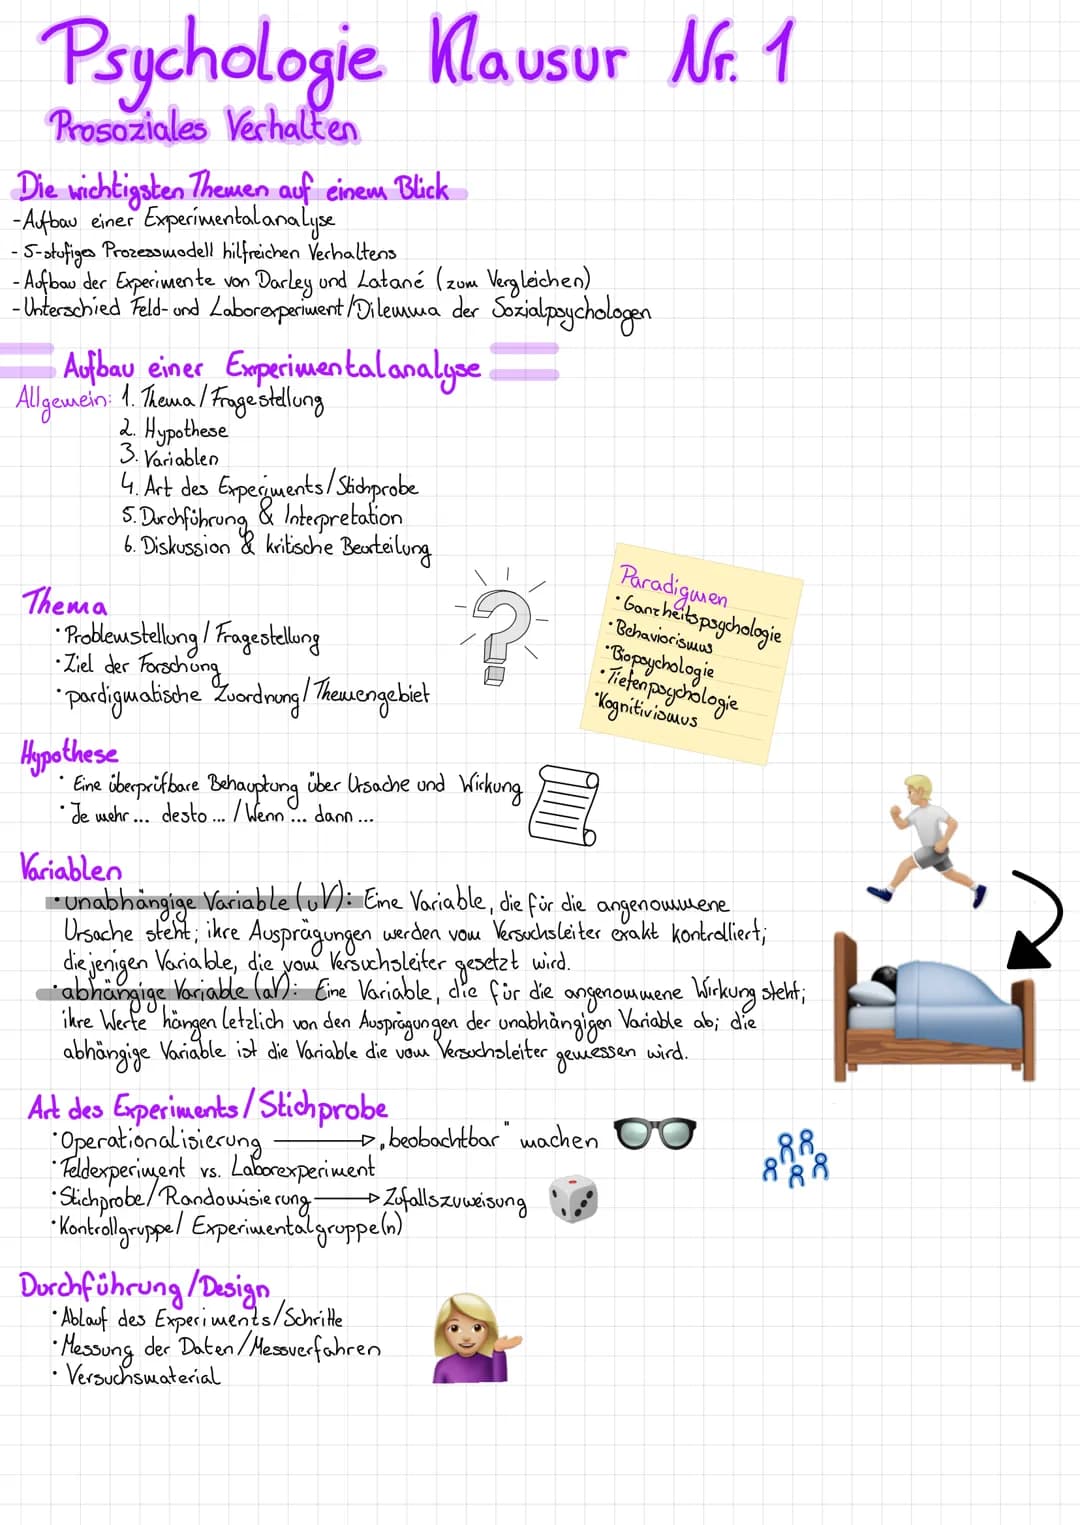 Psychologie Klausur Nr. 1
Prosoziales Verhalten
Die wichtigsten Themen auf einem Blick
-Aufbau einer Experimentalanalyse
- 5-stufiges Prozessmodell hilfreichen Verhaltens
-Aufbau der Experimente von Darley und Latané (zum Vergleichen)
-Unterschied Feld- und Laborexperiment/Dilemma der Sozialpsychologen
Aufbau einer Experimentalanalyse
Allgemein: 1. Thema/Fragestellung
2. Hypothese
3. Variablen
4. Art des Experiments/Stichprobe
5. Durchführung & Interpretation
6. Diskussion & kritische Beurteilung
Thema
• Problemstellung/Fragestellung
• Ziel der Forschung
• pardigmatische Zuordnung/Themengebiet
Paradigmen
• Ganzheitspsychologie
• Behaviorismus
• Biopsychologie
• Tiefenpsychologie
• Kognitivismus
Hypothese
• Eine überprüfbare Behauptung über Ursache und Wirkung
• Je mehr ... desto ... / Wenn ... dann ...
Variablen
• unabhängige Variable (uV): Eine Variable, die für die angenommene
Ursache steht; ihre Ausprägungen werden vom Versuchsleiter exakt kontrolliert;
diejenigen Variable, die vom Versuchsleiter gesetzt wird.
• abhängige Variable (aV): Eine Variable, die für die angenommene Wirkung steht;
ihre Werte hängen letzlich von den Ausprägungen der unabhängigen Variable ab; die
abhängige Variable ist die Variable die vom Versuchsleiter gemessen wird.
Art des Experiments/Stichprobe
• Operationalisierung → „beobachtbar" machen
• Feldexperiment vs. Laborexperiment
• Stichprobe/Randomisierung → Zufallszuweisung
• Kontrollgruppe/Experimentalgruppe(n)
Durchführung/Design
• Ablauf des Experiments/Schritte
• Messung der Daten/Messverfahren
• Versuchsmaterial